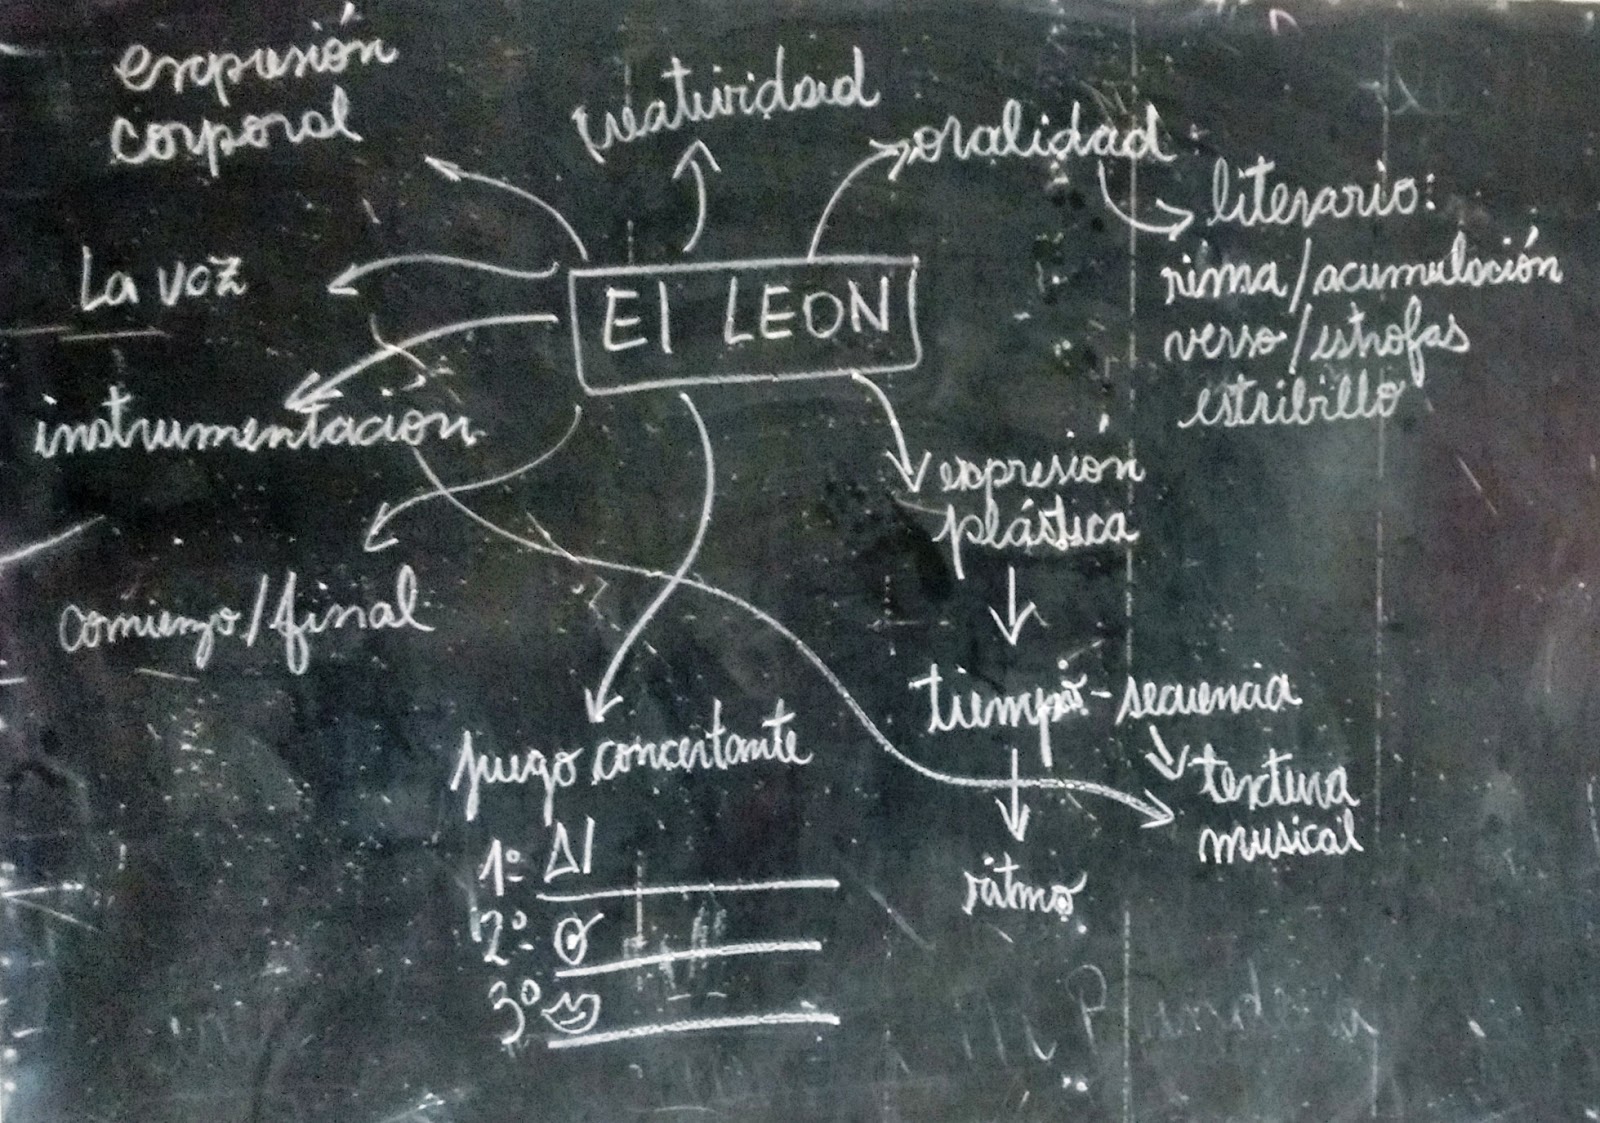 expresión
corporal
creatividad
oralidad
literario:
rima/acumulación
verso/estrofas
estribillo
La voz
El LEON
instrumentacion
expresión
plástica
comienzo/final
tiempo - secuencia
textura
musical
ritmo
juego concertante
1º
2º
3º